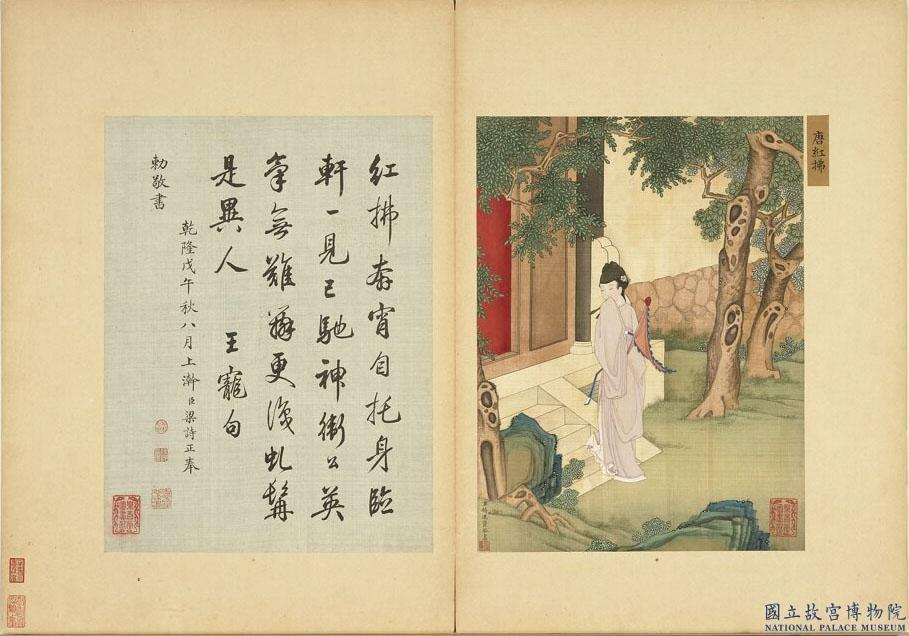 唐紅拂
紅拂奔宵自托身臨
軒一見已馳神衛公英
氣無難辨更復虬髯
是異人 王寵句
乾隆戊午秋八月上瀚臣梁詩正奉
勅敬書
國立故宮博物院
NATIONAL PALACE MUSEUM